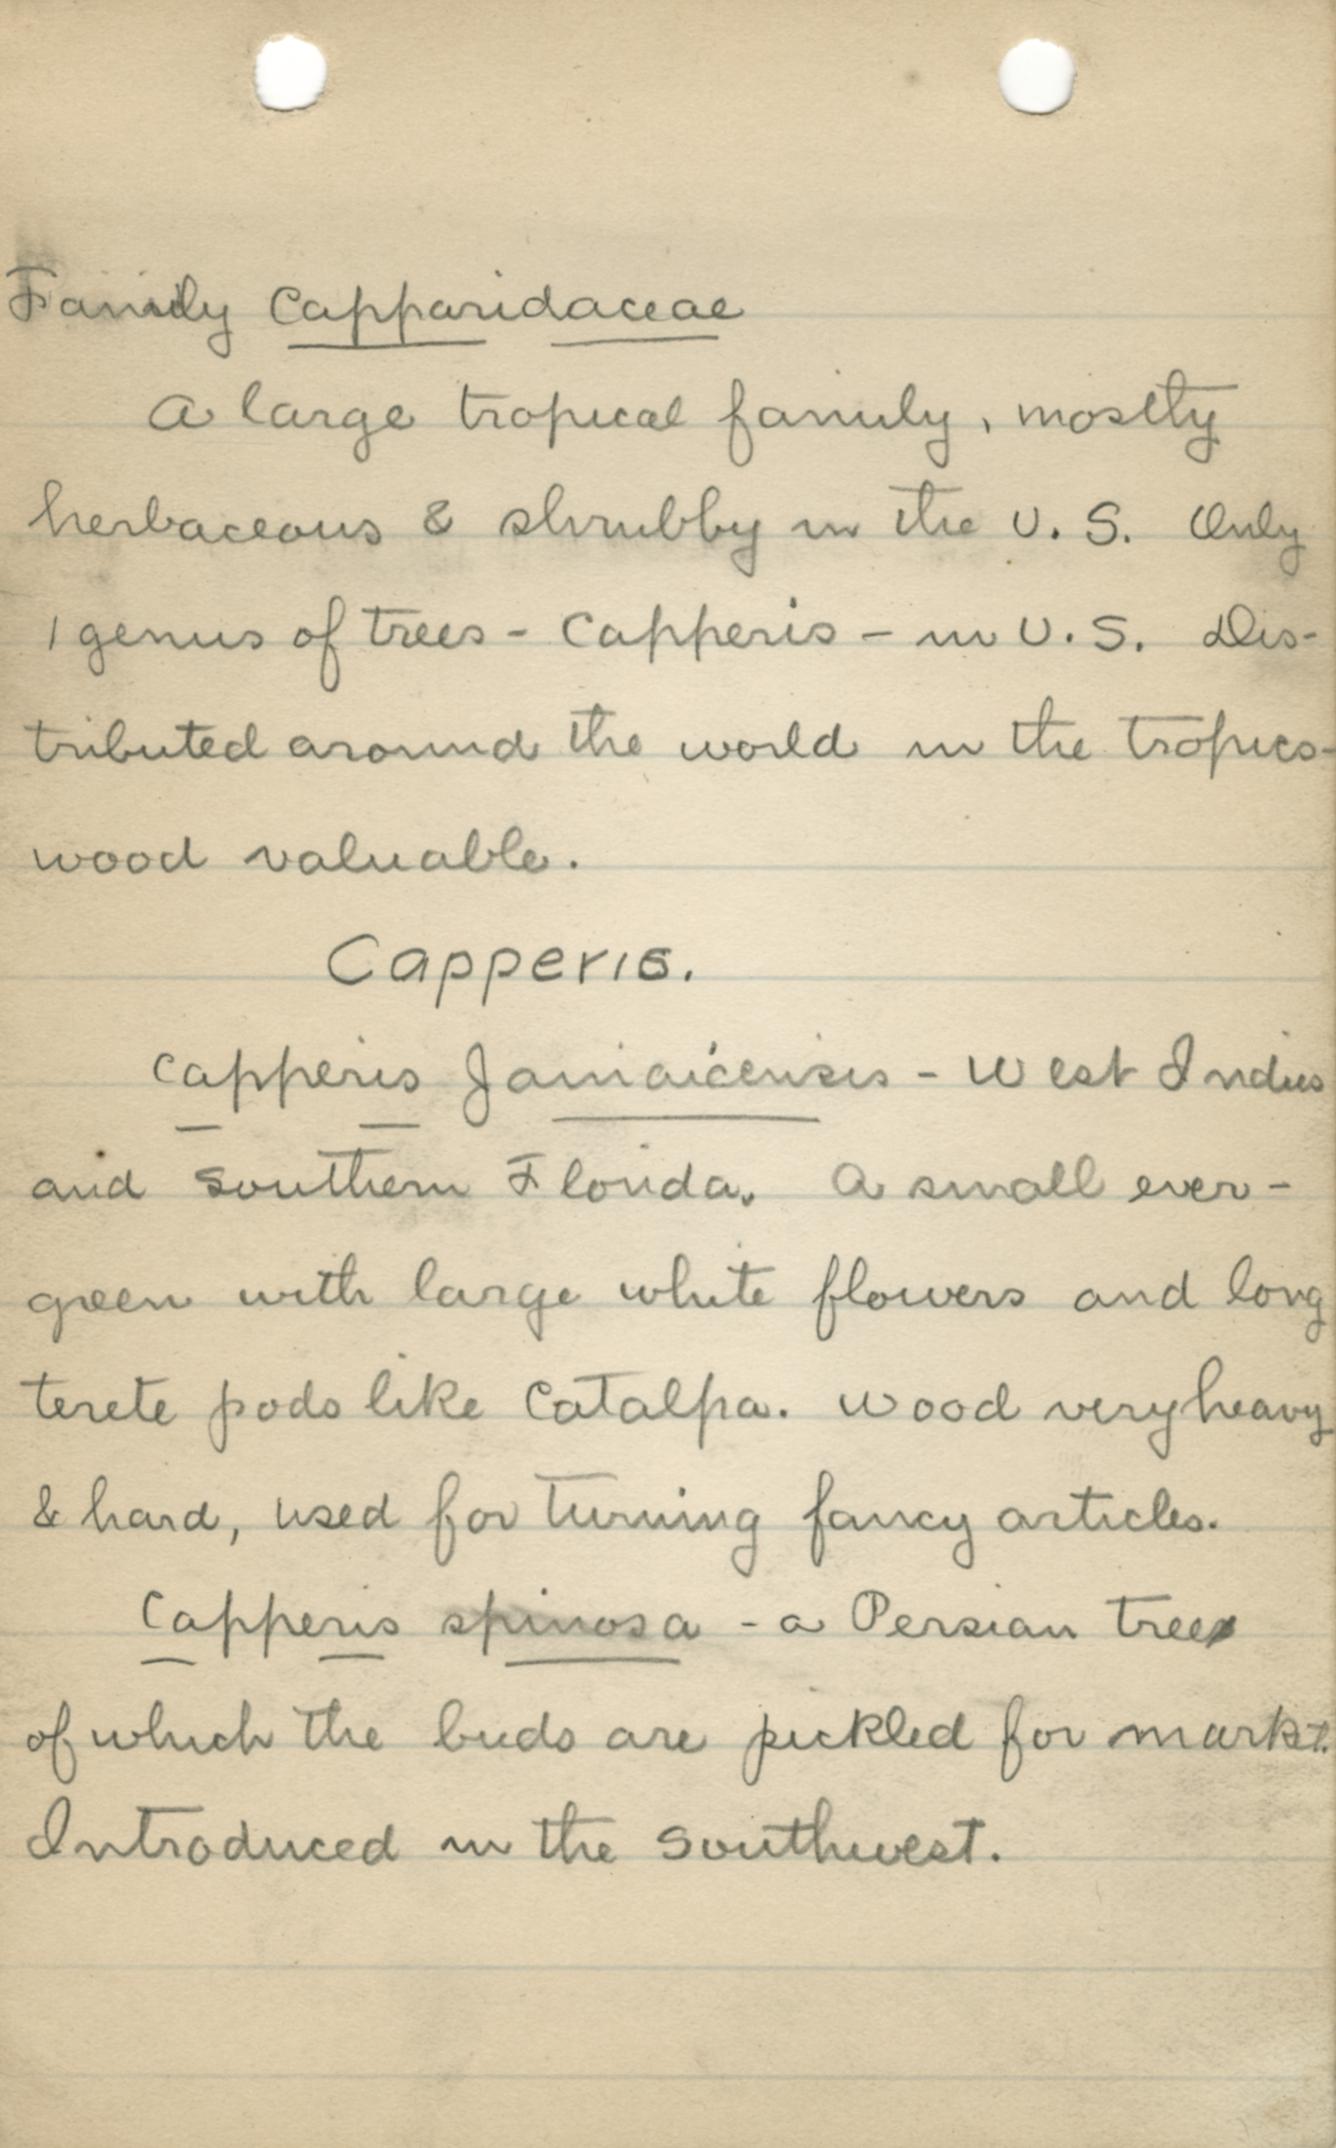 Family Capparidaceae
A large tropical family, mostly
herbaceous & shrubby in the U.S. Only
1 genus of trees - Capperis - in U.S. Dis-
tributed around the world in the tropics-
wood valuable.
Capperis.
Capperis Jamaicensis - West Indies
and Southern Florida. A small ever-
green with large white flowers and long
terete pods like Catalpa. Wood very heavy
& hard, used for turning fancy articles.
Capperis spinosa - a Persian tree
of which the buds are pickled for markt.
Introduced in the Southwest.